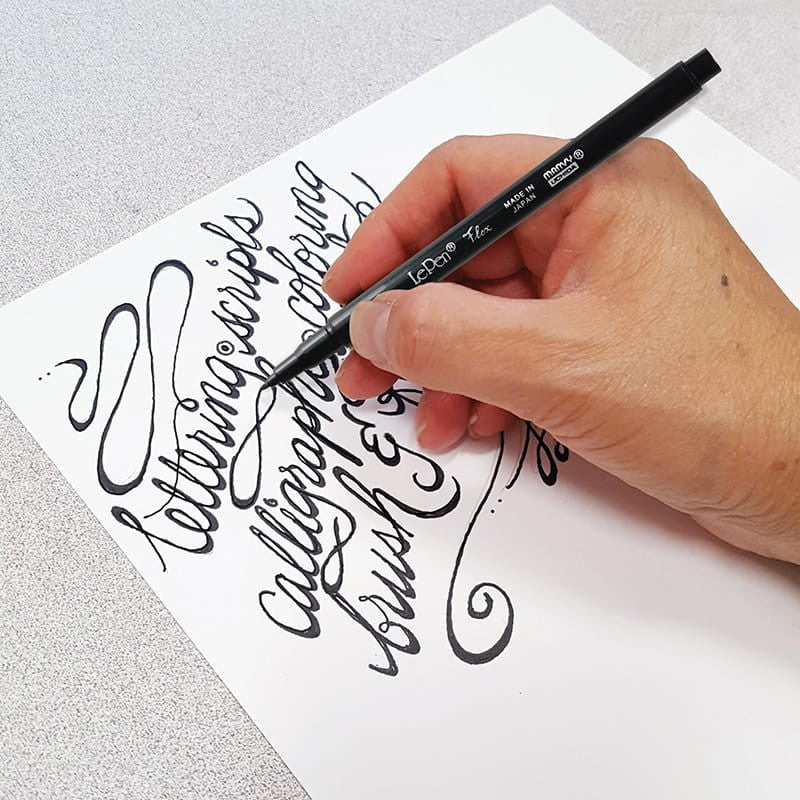 lettering • scripts
calligraphy • coloring
brush &
LePen® Flex
MADE IN
JAPAN
MARVY®
UCHIDA